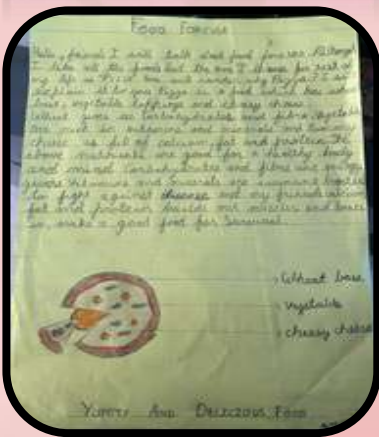 FOOD FOREVER
Hello, friends I will talk about food forever. Although
I like all the foods but the one I choose for rest of
my life is PIZZA
explain it to you Pizza is a food which has wheat
base, vegetable toppings and cheesy cheese.
Wheat gives us carbohydrates and fibre, Vegetable
are rich in vitamins and minerals and
cheese is full of calcium, fat and protein. The
above nutrients are good for a healthy body
and mind. Carbohydrates and fibre are energy
givers Vitamins and minerals are
to fight against disease and my friends calcium
fat and protein builds our muscles and bones
So, make a good food for
Wheat base
Vegetable
cheesy cheese
YUMMY AND DELECIOUS FOOD